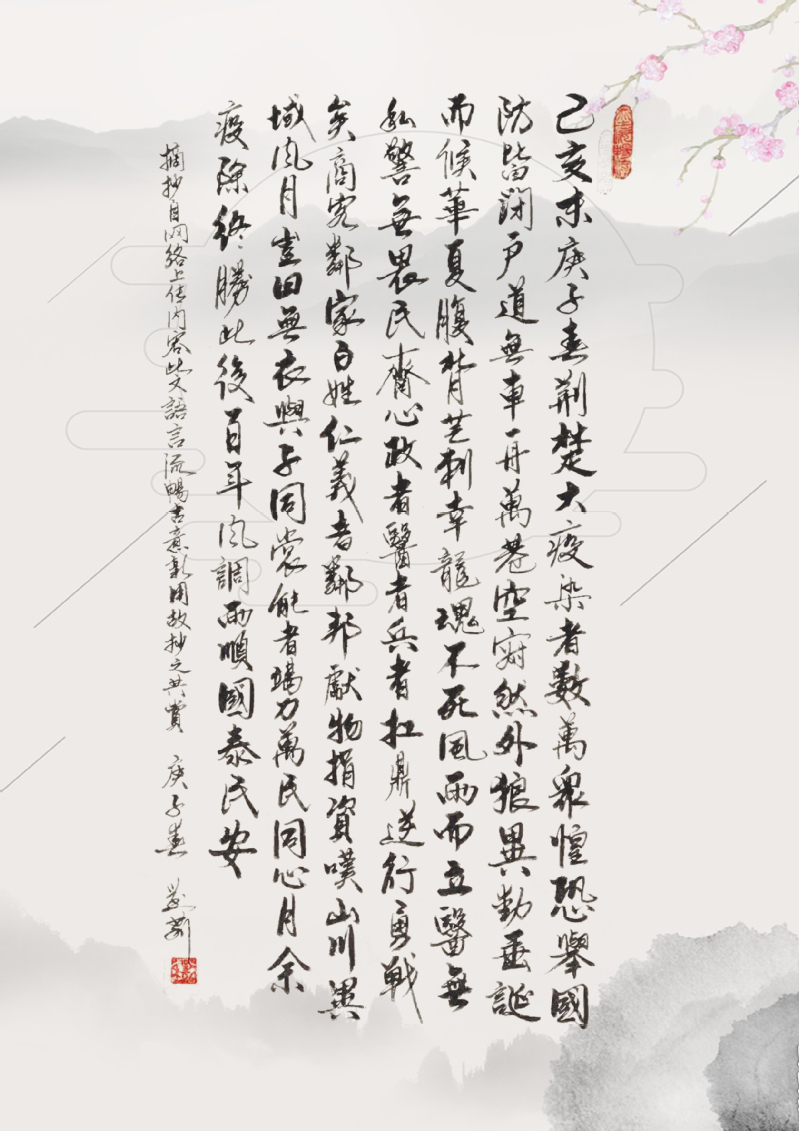 己亥末庚子春荆楚大疫染者數萬衆惶恐舉國
防皆閉戶道無車舟萬巷空寂然外狼異動垂誕
而候華夏腹背芒刺幸龍魂不死風雨而立醫無
私警無畏民齊心政者醫者兵者扛鼎逆行勇戰
矣商客鄰家百姓仁義者鄰邦獻物捐資嘆山川異
域風月同無衣與子同裳能者竭力萬民同心月余
疫除終勝此後百年風調雨順國泰民安
摘抄自网络上传内容此文語言流暢意彰用故抄之共賞 庚子春